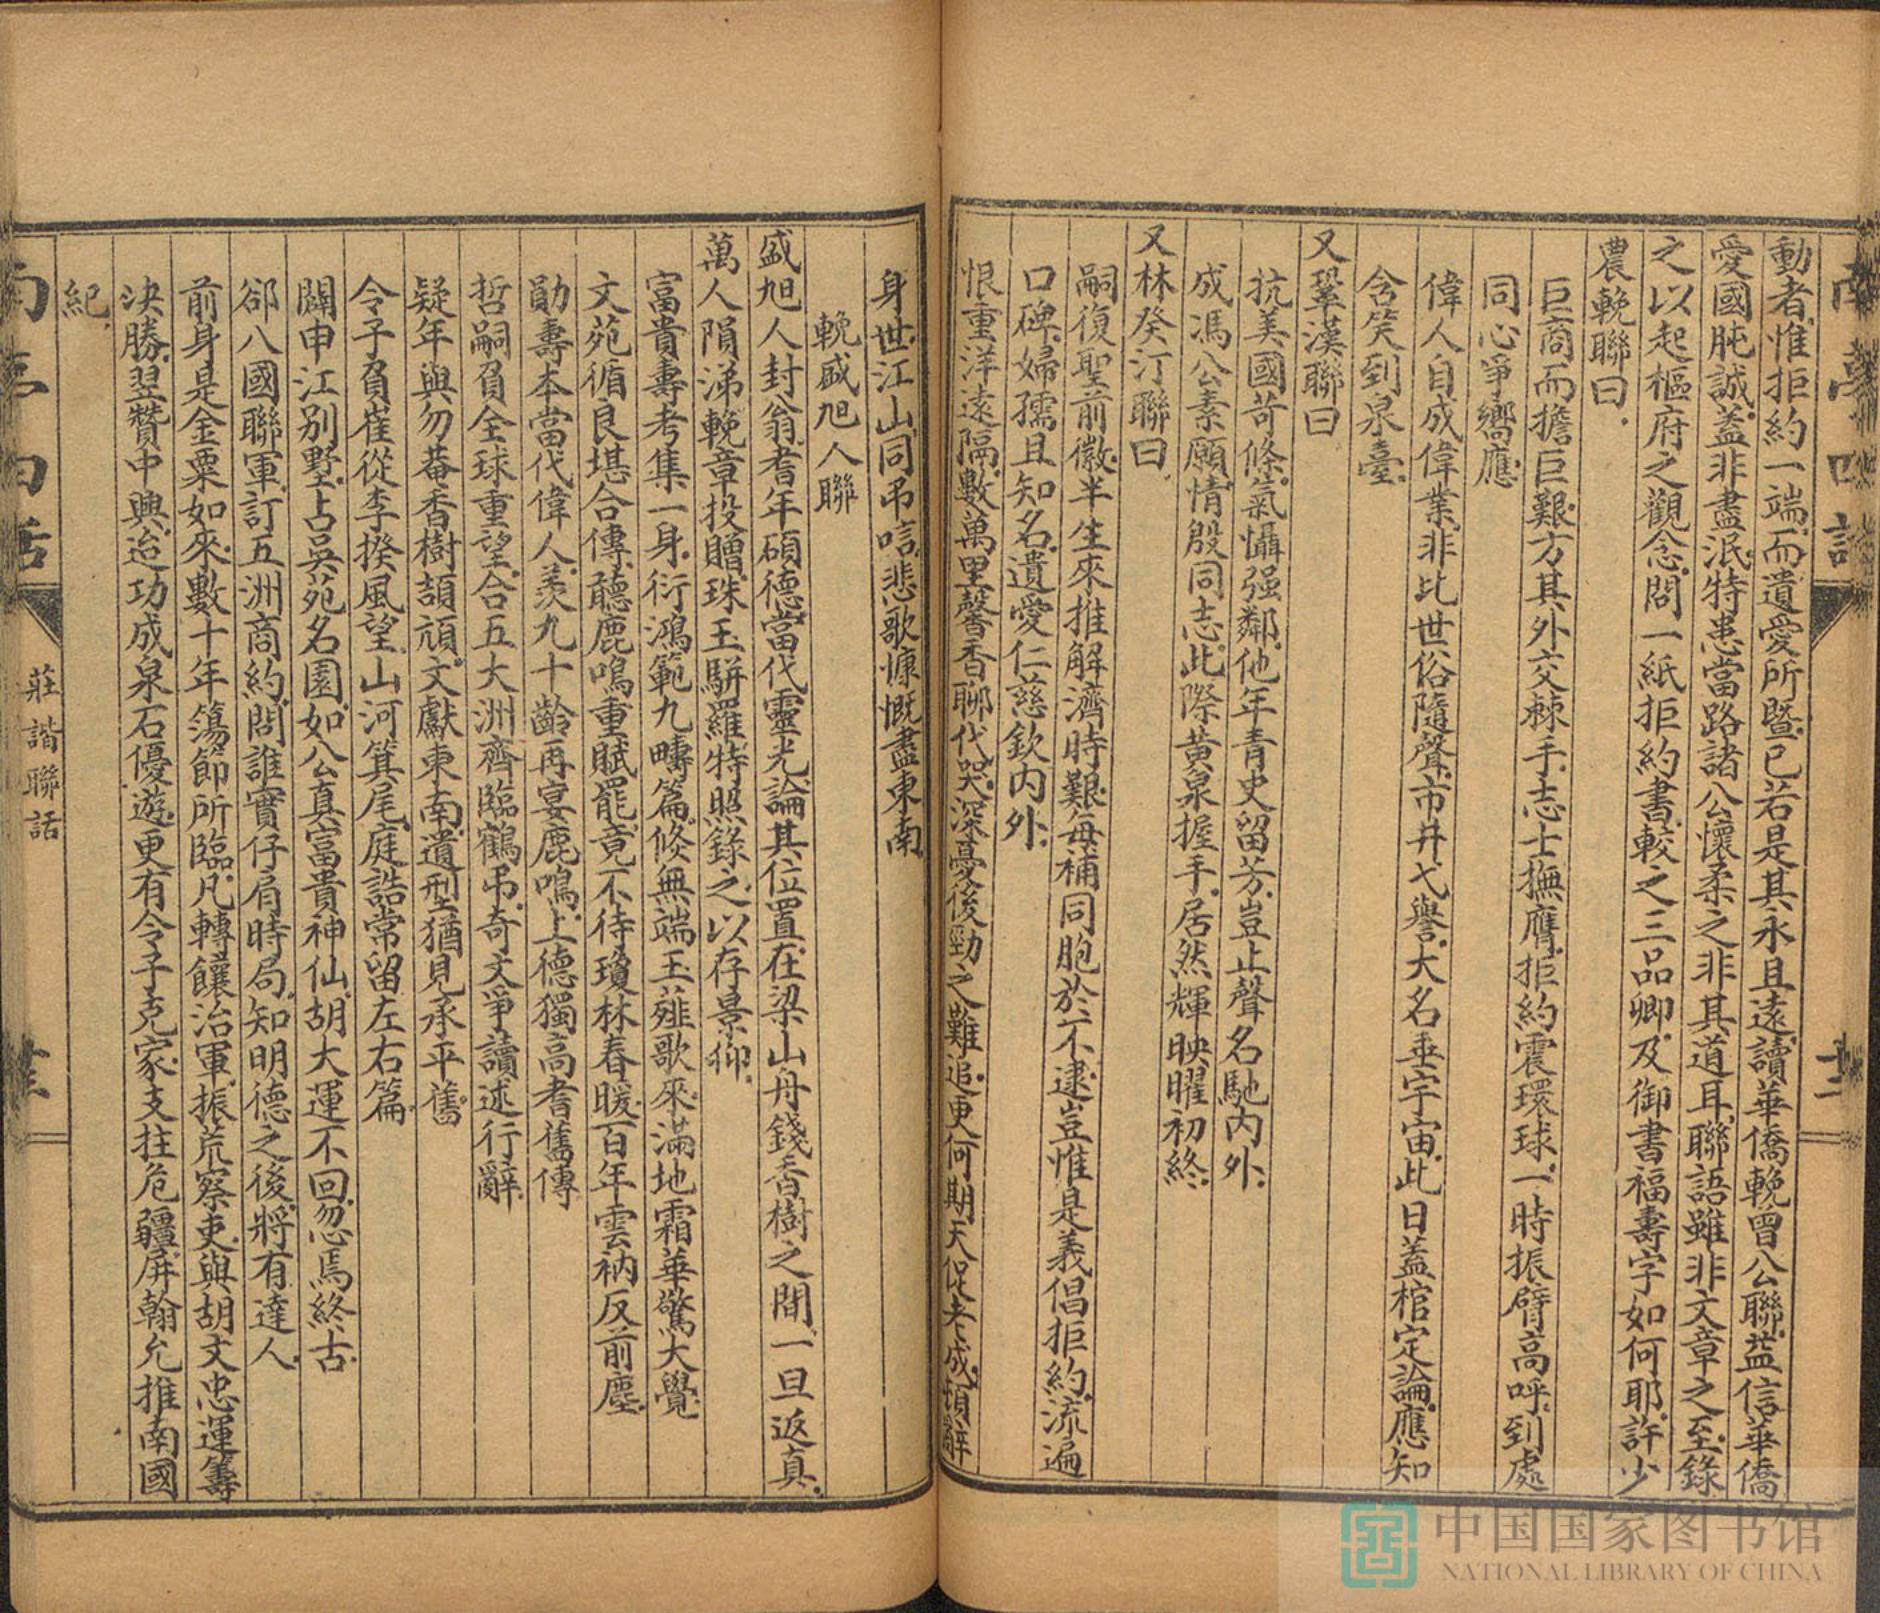 動者惟拒約一端而遺愛所暨已若是其永且遠讀華僑輓曾公聯益信華僑
愛國肫誠蓋非盡泯特患當路諸公懷柔之非其道耳聯語雖非文章之至錄
之以起樞府之觀念問一紙拒約書較之三品卿及御書福壽字如何耶許少
農輓聯曰
巨商而擔巨艱方其外交棘手志士撫膺拒約震環球一時振臂高呼到處
同心爭嚮應
偉人自成偉業非比世俗隨聲市井弋譽大名垂宇宙此日蓋棺定論應知
含笑到泉臺
又鞏漢聯曰
抗美國苛條氣懾强鄰他年青史留芳豈止聲名馳內外
成馮公素願情殷同志此際黃泉握手居然輝映曜初終
又林癸汀聯曰
嗣復聖前徽半生來推解濟時艱每補同胞於不逮豈惟是義倡拒約流遍
口碑婦孺且知名遺愛仁慈欽內外
恨重洋遠隔數萬里馨香聊代哭深憂後勁之難追更何期天促老成頊辭
身世江山同弔唁悲歌慷慨盡東南
輓盛旭人聯
盛旭人封翁耆年碩德當代靈光論其位置在梁山舟錢香樹之間一旦返真
萬人隕涕輓章投贈珠玉駢羅特照錄之以存景仰
富貴壽考集一身衍鴻範九疇篇倏無端玉薤歌來滿地霜華驚大覺
文苑循良堪合傳聽鹿鳴重賦罷竟不待瓊林春暖百年雲衲反前塵
勛壽本當代偉人羨九十齡再宴鹿鳴上德獨高耆舊傳
哲嗣負全球重望合五大洲齊臨鶴弔奇文爭讀述行辭
疑年與勿菴香樹頡頏文獻東南遺型猶見承平舊
令子負崔從李揆風望山河箕尾庭誥常留左右篇
闢申江別墅占吳苑名園如公真富貴神仙胡大運不回忽焉終古
郤八國聯軍訂五洲商約問誰實仔肩時局知明德之後將有達人
前身是金粟如來數十年篛節所臨凡轉饟治軍振荒察吏與胡文忠運籌
决勝翌贊中興迨功成泉石優遊更有令子克家支拄危疆屏翰允推南國
紀
莊諧聯話